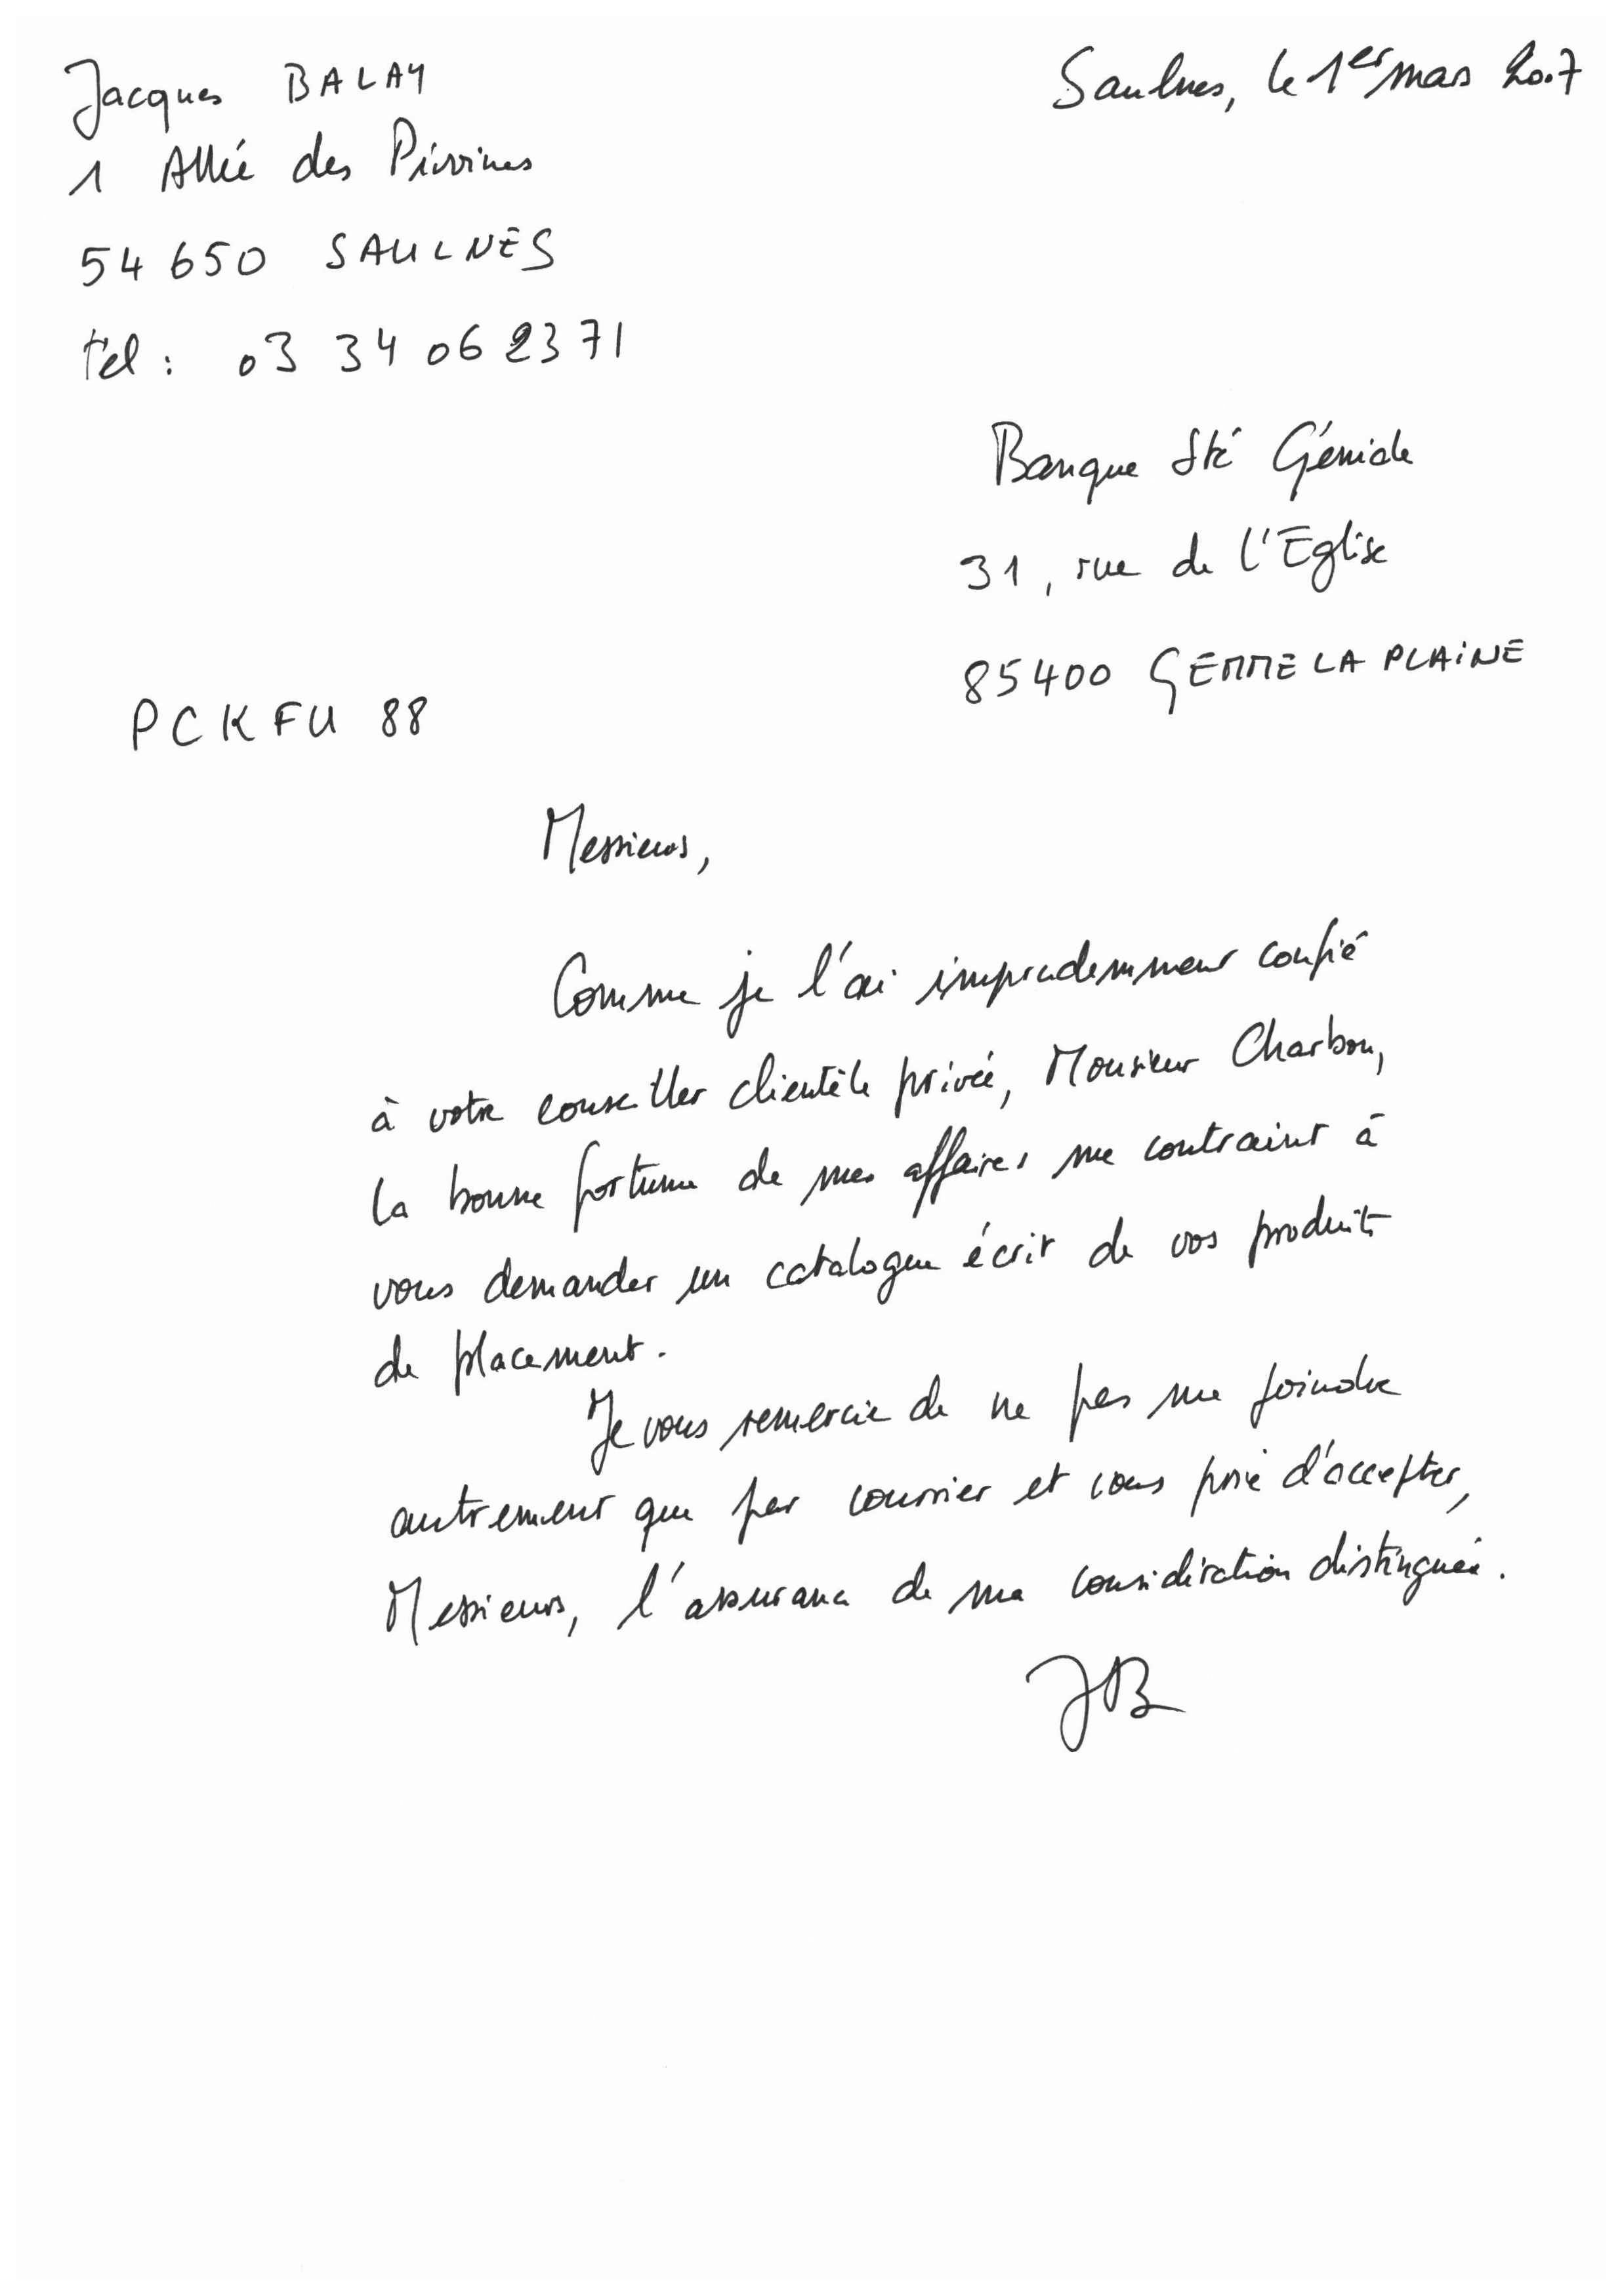 Jacques BALAY
Saulnes, le 1er mars 2007
1 Allée des
54650 SAULNES
tel : 03 34 06 23 71
Banque Sté
31, rue de l'Eglise
85400 GEMME LA PLAINE
PCKFU 88
Messieurs,
Comme je l'ai imprudemment confié
à votre conseiller clientèle privée, Monsieur Charbon,
la bonne fortune de mes affaires me contraint à
vous demander un catalogue écrit de vos produits
de placement.
Je vous remercie de ne pas me joindre
autrement que par courrier et vous prie d'accepter,
Messieurs, l'assurance de ma considération distinguée.
JB